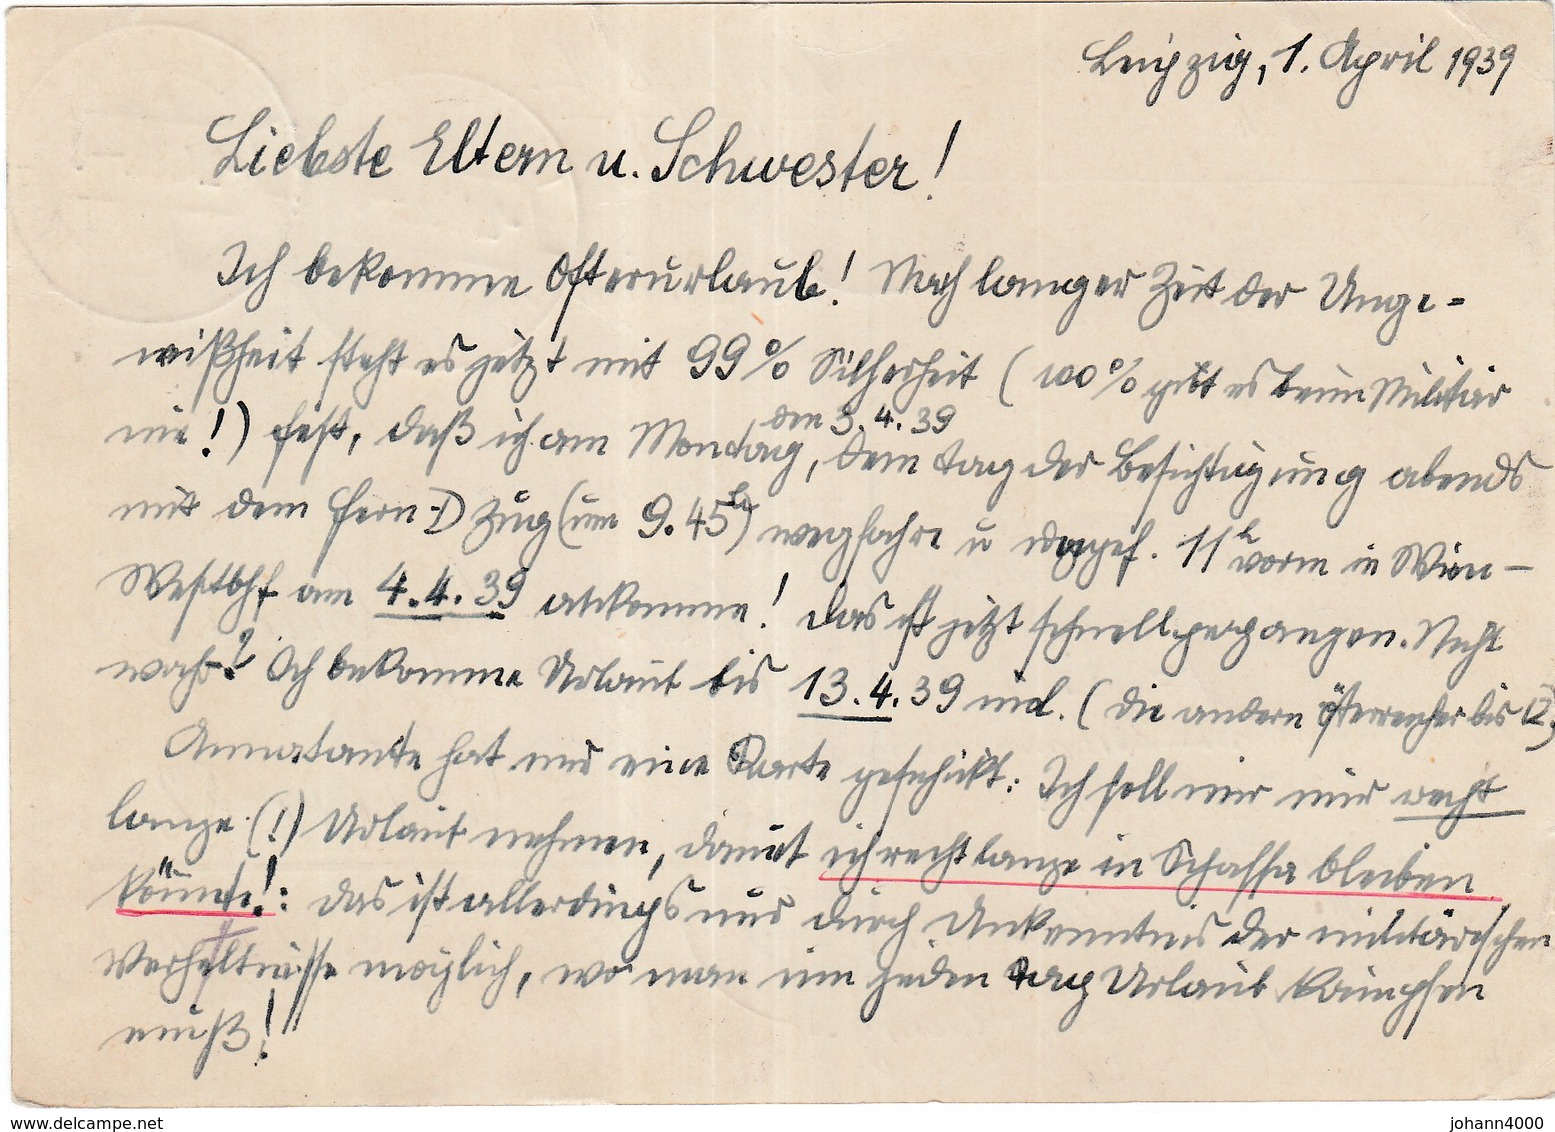 Leipzig, 1. April 1939
Liebste Eltern u. Schwester!
Ich bekomme Osterurlaub! Nach langer Zeit der Unge-
wißheit steht es jetzt mit 99% Sicherheit (100% gibt es beim Militär
nie!) fest, daß ich am Montag, den 3.4.39 dem Tag der Besichtigung abends
mit dem Fern-D Zug (um 9.45h) wegfahre u ungef. 11h vorm in Wien-
Westbhf am 4.4.39 ankomme! Das ist jetzt schnell gegangen. Nicht
wahr? Ich bekomme Urlaub bis 13.4.39 incl. (die andern Österreicher bis 12.)
Annatante hat mir eine Karte geschickt: Ich soll mir nur recht
lange (!) Urlaub nehmen, damit ich recht lange in Schaffa bleiben
könnte!: Das ist allerdings nur durch Unkenntnis der militärischen
Verhältnisse möglich, wo man um jeden Tag Urlaub kämpfen
muß!
www.delcampe.net
johann4000